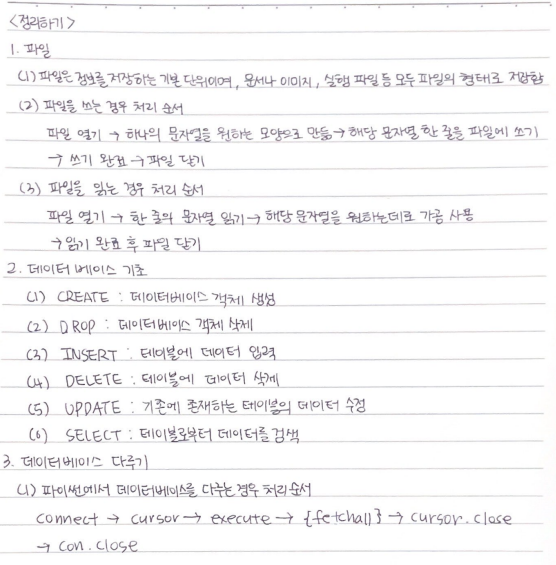 <정리하기>
1. 파일
(1) 파일은 정보를 저장하는 기본 단위이며, 문서나 이미지, 실행 파일 등 모두 파일의 형태로 저장함
(2) 파일을 쓰는 경우 처리 순서
파일 열기 → 하나의 문자열을 원하는 모양으로 만듦 → 해당 문자열 한 줄을 파일에 쓰기
→ 쓰기 완료 → 파일 닫기
(3) 파일을 읽는 경우 처리 순서
파일 열기 → 한 줄의 문자열 읽기 → 해당 문자열을 원하는데로 가공 사용
→ 읽기 완료 후 파일 닫기
2. 데이터베이스 기초
(1) CREATE : 데이터베이스 객체 생성
(2) DROP : 데이터베이스 객체 삭제
(3) INSERT : 테이블에 데이터 입력
(4) DELETE : 테이블에 데이터 삭제
(5) UPDATE : 기존에 존재하는 테이블의 데이터 수정
(6) SELECT : 테이블로부터 데이터를 검색
3. 데이터베이스 다루기
(1) 파이썬에서 데이터베이스를 다루는 경우 처리 순서
connect → cursor → execute → {fetchall} → cursor.close
→ con.close